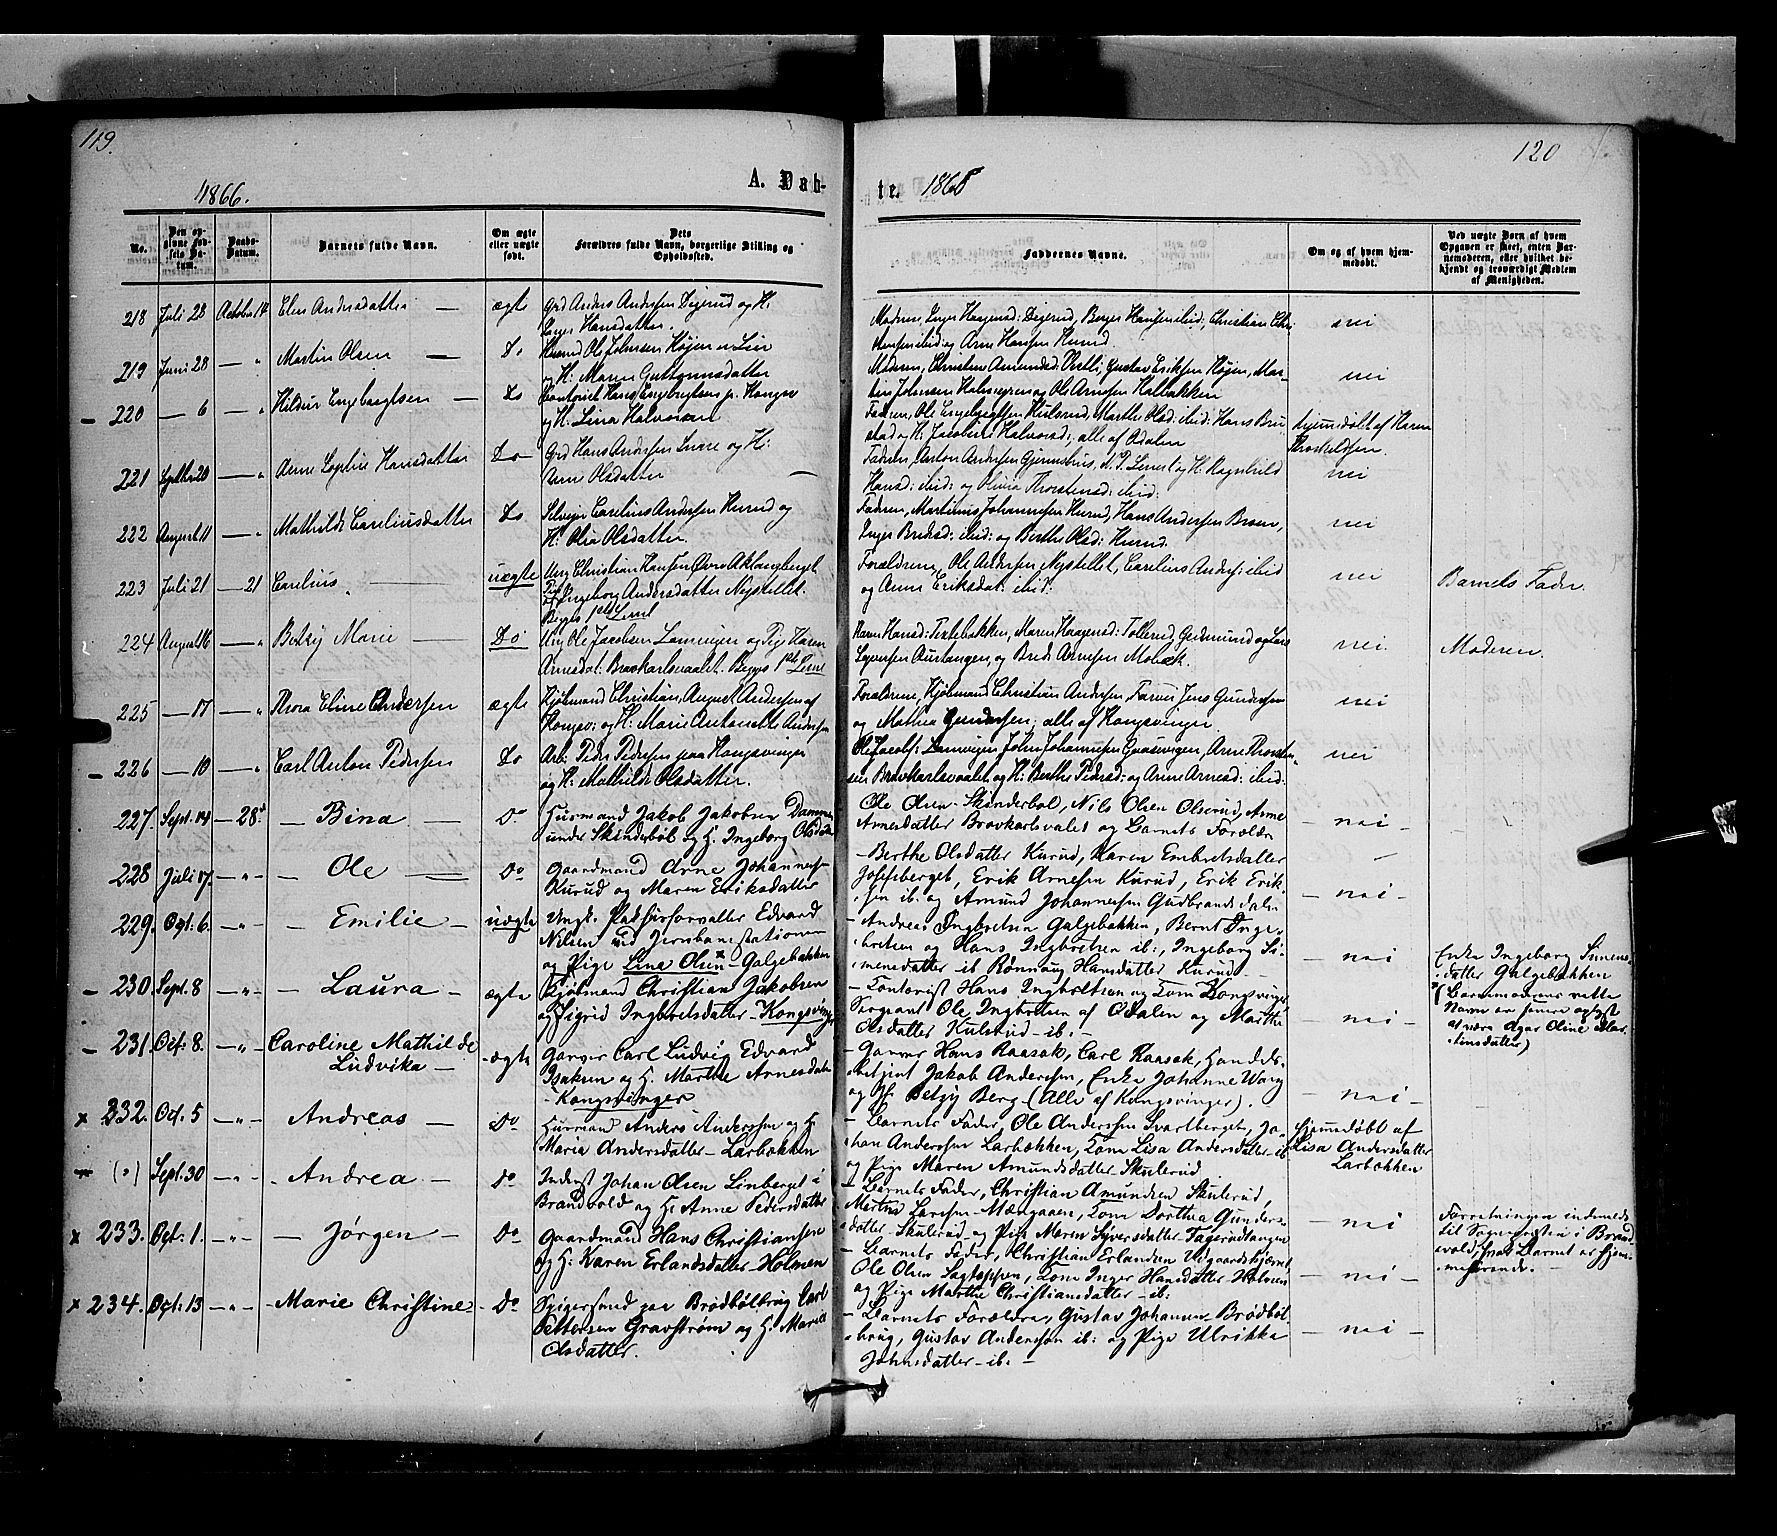 119.
120
1866.
A. Dah-
te. 1868
No.
Den op-
givne Fød-
sels Da-
tum.
Daabs-
Datum.
Barnets fulde Navn.
Om ægte
eller uægte
født.
Dets
Forældres fulde Navn, borgerlige Stilling og
Opholdssted.
Faddernes Navne.
Om og af hvem hjem-
medøbt.
Ved uægte Børn af hvem
Opgaven er skeet, enten Bar-
nemoderen, eller hvilket be-
kjendt og troværdigt Medlem
af Menigheden.
218 Juli 23 October 14 Elen Andersdatter — ægte Grd Anders Andersen Digerud og H:
Inger Hansdatter.
Moderen, Inger Haagensd: Digerud, Berger Hansen ibid, Christian Chri-
stiansen ibid og Arne Hansen Kurud. nei
219 Juni 28 — " Martin Olsen — Do Husmd Ole Johnsen Højen u. Lier
og H: Maren Guttormsdatter
Moderen, Christen Amundsd: Overli, Gustav Eriksen Højen, Mar-
tin Johnsen Holmegren og Ole Arnesen Kalbakken nei
– 220 — 6 — " Hildur Engebregtsen — Do Contorist Hans Engebregtsen p. Kongsv
og H: Lina Halvorsen
Fadren, Ole Engebregtsen Kulsrud, Marthe Olsd: ibid: Hans Bru-
stad og H: Jacobine Halvorsd:, alle af Odalen hjemmedøbt af Karen
Thorkeldsen.
221 Septbr 20 — " Anne Sophie Hansdatter Do Grd Hans Andersen Linne og H:
Anne Olsdatter —
Fadren, Anton Andersen Gjermshus, N. P. Linnet og H: Ragnhild
Hansd: ibid: og Olivia Thorstensd: ibid: nei
222 August 11 — " Mathilde Careliusdatter Do Selveier Carelius Andersen Kurud og
H: Olia Olsdatter.
Fadren, Martinus Johannesen Kurud, Hans Andersen Broen,
Inger Bredesd: ibid: og Berthe Olsd: Kurud. nei
223 Juli 21 — 21 Carelius. — uægte Ung Christian Hansen Øvre Aklangberget
og Pig Ingeborg Andersdatter Nystellet.
Begges 1ste Leierl
Forældrene, Ole Andersen Nystellet, Carelius Anders: ibid
og Anne Eriksdat: ibid: nei Barnets Fader.
224 August 16 — " Betsy Marie — Do Ung Ole Jacobsen Lauvigen og Pige Karen
Arnesdat: Bravkarlsvaalet. Begges 1ste Leierl
Karen Hansd: Tentebakken, Maren Haagensd: Tollerud, Gudmund og Lars
Larsen Aurtangen, og Brede Arnesen Mobæk. nei Moderen.
225 — 17 — " Thora Eline Andersen ægte Kjøbmand Christian August Andersen af
Kongsv: og H: Marie Antonette Andersen
Forældrene, Kjøbmand Christian Andersen, Farver Jens Gundersen
og Mathea Gundersen, alle af Kongsvinger. nei
– 226 — 10 — " Carl Anton Pedersen Do Arb: Peder Pedersen paa Kongsvinger
og H: Mathilde Olsdatter.
Ole Jacobs: Lauvigen John Johannesen Graasvigen, Arne Thorsten-
sen Bravkarlsvaalet og H: Berthe Pedersd: og Anne Arnesd: ibid: nei
227. Sept. 14 — 28d — Bina — Do Husmand Jakob Jakobsen Dammen
under Skinderbøl og H. Ingeborg Olsdtr
Ole Olsen Skinderbøl, Nils Olsen Olserud, Anne
Arnesdatter Bravkarlsvalet og Barnets Forældre – nei –
228 Juli 17. – " – – Ole — Do Gaardmand Arne Johannesen
Kurud og Maren Eriksdatter
– Berthe Olsdatter Kurud, Karen Embretsdatter
Josefsberget, Erik Arnesen Kurud, Erik Erik-
sen ib: og Amund Johannesen Gudbrandsdalen – nei –
229. Oct. 6. – " – – Emilie – uægte Ungk. Pakhusforvalter Edvard
Nilsen ved Jernbanestationen
og Pige Lina Olsen x – Galgebakken
– Andreas Ingbretsen Galgebakken, Bernt Inge-
bretsen og Hans Ingbretsen ib:, Ingeborg Si-
mensdatter ib Rønnaug Hansdatter Kurud – nei – Enke Ingeborg Simens-
datter Galgebakken
x (Barnemoderens rette
Navn er senere oplyst
at være Agar Oline Mar-
tinsdatter)
– 230. Sept. 8 – " – – Laura – ægte Kjøbmand Christian Jakobsen
og Sigrid Ingbretsdatter – Kongsvinger
– Contorist Hans Ingbretsen og Kone Kongsvinger
Sergeant Ole Ingbretsen af Odalen og Marthe
Olsdatter Kulsrud – ib. – – nei –
– 231. Oct. 8. – " – Caroline Mathilde
Ludvika – – ægte Garver Carl Ludvig Edvard
Isaksen og H. Marthe Arnesdatter
– Kongsvinger
– Garver Hans Raasok, Carl Raasok, Handels-
betjent Jakob Andersen, Enke Johanne Wang
og Jf. Betzy Berg – (Alle af Kongsvinger). – nei –
x 232. Oct. 5 – " – Andreas – Do Husmand Anders Anderssen og H
Maria Andersdatter – Larbekken
– Barnets Fader, Ole Anderssen Svartberget, Jo-
han Anderssen Larbekken, Kone Lisa Andersdatter ib
og Pige Maren Amundsdatter Skulerud Hjemmedøbt af
Lisa Andersdatter
Larbekken
(") Sept. 30 – " – – Andrea – Do Inderst Johan Olsen Linberget i
Brandvold og H: Anne Pedersdatter
– Barnets Fader, Christian Amundsen Skulerud,
Martin Larsen Mængaaen, Kone Dorthea Gunders-
datter Skulerud og Pige Maren Syversdatter Fagerudtangen – nei – Forretningen indmeldt
til Sognepresten i Brand-
vold, hvor Barnet er hjem-
mehørende. –
x 233. Oct. 1. – " – – Jørgen – Do Gaardmand Hans Christiansen
og H: Karen Erlandsdatter – Holmen
– Barnets Fader, Christian Erlandsen Vidgaardshjærnet
Ole Olsen Sagtoppen, Kone Inger Hansdatter Holmen
og Pige Marthe Christiansdatter – ib: – nei –
x 234. Oct: 13 – " – – Marie Christine – Do Spigersmed paa Brødbølbrug Carl
Pettersen Gravstrøm og H. Marie
Olsdatter.
– Barnets Forældre, Gustav Johansen Brødbøl-
brug, Gustav Andersson ib: og Pige Ulrikka
Johnsdatter – ib: – – nei –